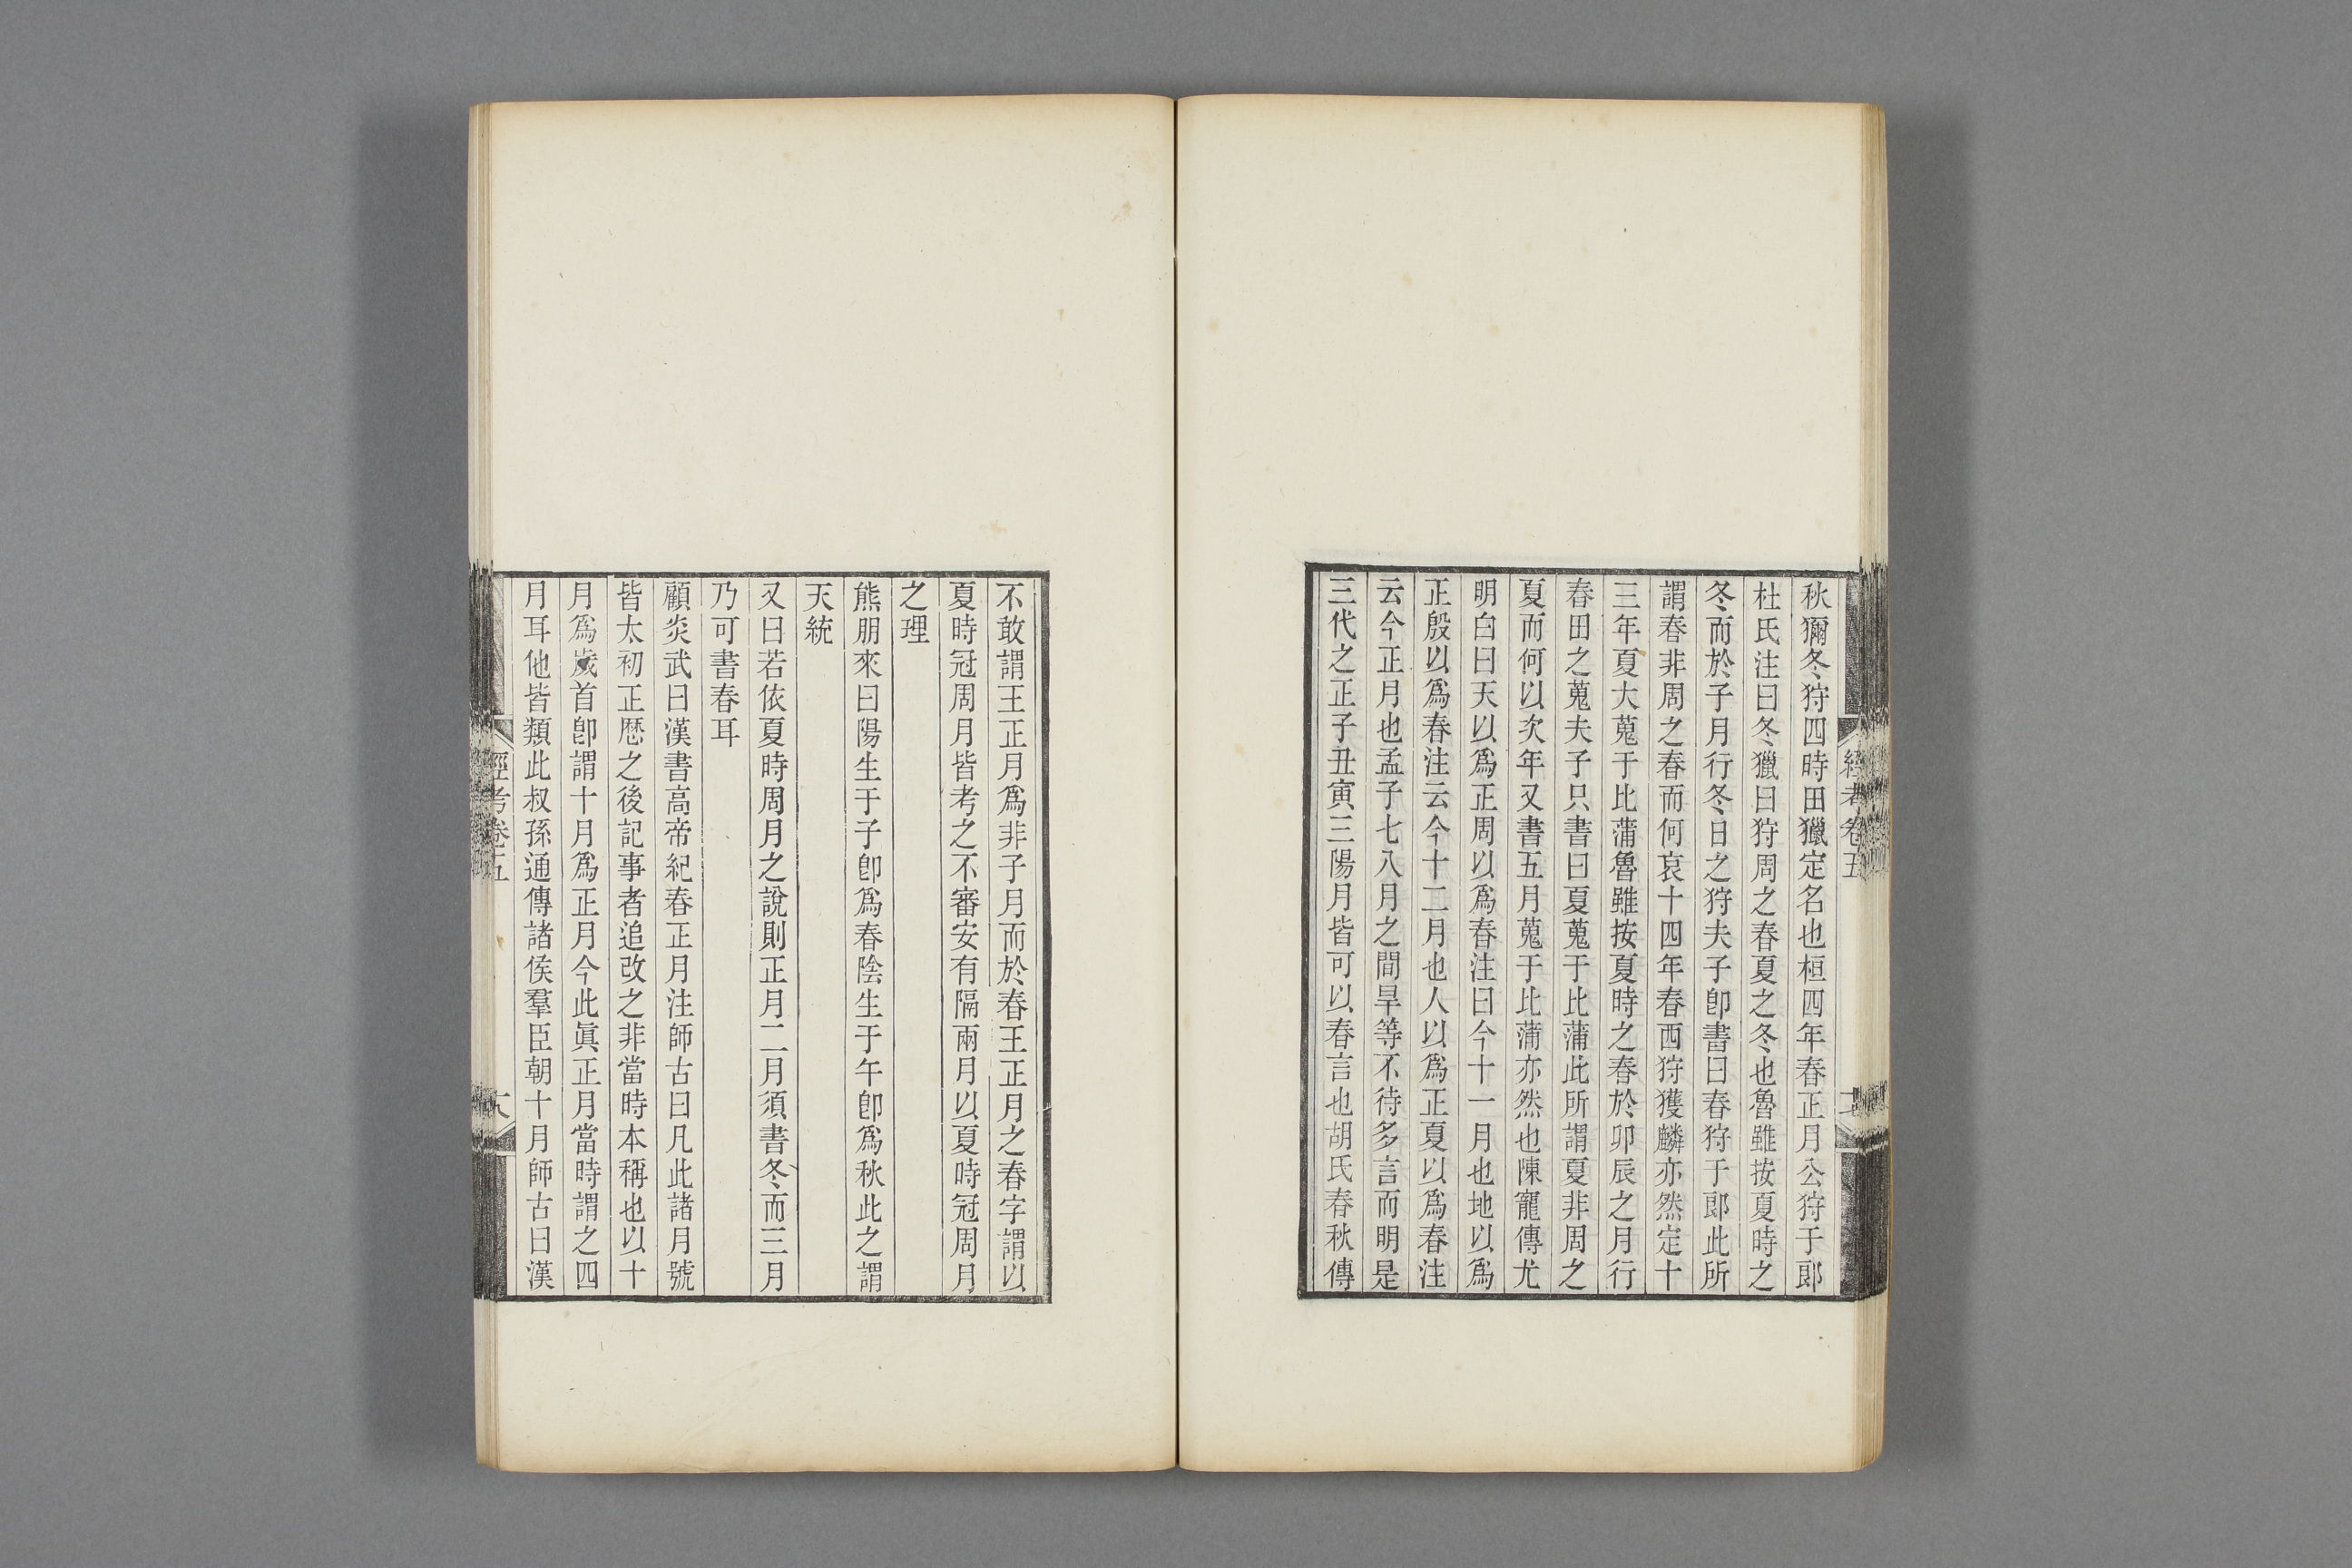 秋獮冬狩四時田獵定名也桓四年春正月公狩于郎
杜氏注曰冬獵曰狩周之春夏之冬也魯雖按夏時之
冬而於子月行冬日之狩夫子卽書曰春狩于郎此所
謂春非周之春而何哀十四年春西狩獲麟亦然定十
三年夏大蒐于比蒲魯雖按夏時之春於卯辰之月行
春田之蒐夫子只書曰夏蒐于比蒲此所謂夏非周之
夏而何以次年又書五月蒐于比蒲亦然也陳寵傳尤
明白曰天以爲正周以爲春注曰今十一月也地以爲
正殷以爲春注云今十二月也人以爲正夏以爲春注
云今正月也孟子七八月之間旱等不待多言而明是
三代之正子丑寅三陽月皆可以春言也胡氏春秋傳
經考卷五
不敢謂王正月爲非子月而於春王正月之春字謂以
夏時冠周月皆考之不審安有隔兩月以夏時冠周月
之理
熊朋來曰陽生于子卽爲春陰生于午卽爲秋此之謂
天統
又曰若依夏時周月之說則正月二月須書冬而三月
乃可書春耳
顧炎武曰漢書高帝紀春正月注師古曰凡此諸月號
皆太初正厯之後記事者追改之非當時本稱也以十
月爲歲首卽謂十月爲正月今此眞正月當時謂之四
月耳他皆類此叔孫通傳諸侯羣臣朝十月師古曰漢
經考卷五